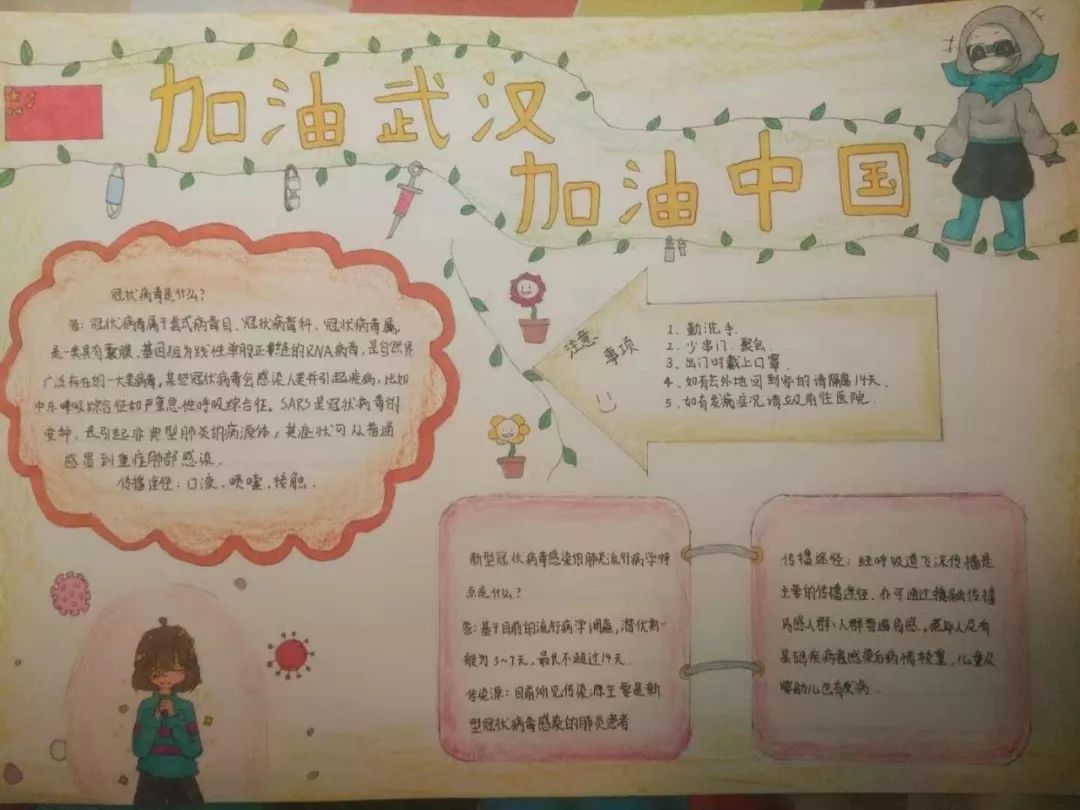 加油武汉
加油中国
冠状病毒是什么?
答:冠状病毒属于套式病毒目、冠状病毒科、冠状病毒属,
是一类具有囊膜、基因组为线性单股正链的RNA病毒,是自然界
广泛存在的一大类病毒。某些冠状病毒会感染人类并引起疾病,比如
中东呼吸综合征和严重急性呼吸综合征。SARS是冠状病毒的
变种,是引起非典型肺炎的病源体,其症状可从普通
感冒到重症肺部感染。
传播途径:口液、喷嚏、接触.
注意
事项
1. 勤洗手.
2. 少串门、聚会.
3. 出门时戴上口罩.
4. 如有去外地回到家的请隔离14天.
5. 如有发病症况请立及前往医院.
新型冠状病毒感染的肺炎流行病学特
点是什么?
答:基于目前的流行病学调查,潜伏期一
般为3~7天,最长不超过14天.
传染源:目前所见传染源主要是新
型冠状病毒感染的肺炎患者
传播途径:经呼吸道飞沫传播是
主要的传播途径,亦可通过接触传播
易感人群:人群普遍易感。老年人及有
基础疾病者感染后病情较重,儿童及
婴幼儿也有发病.